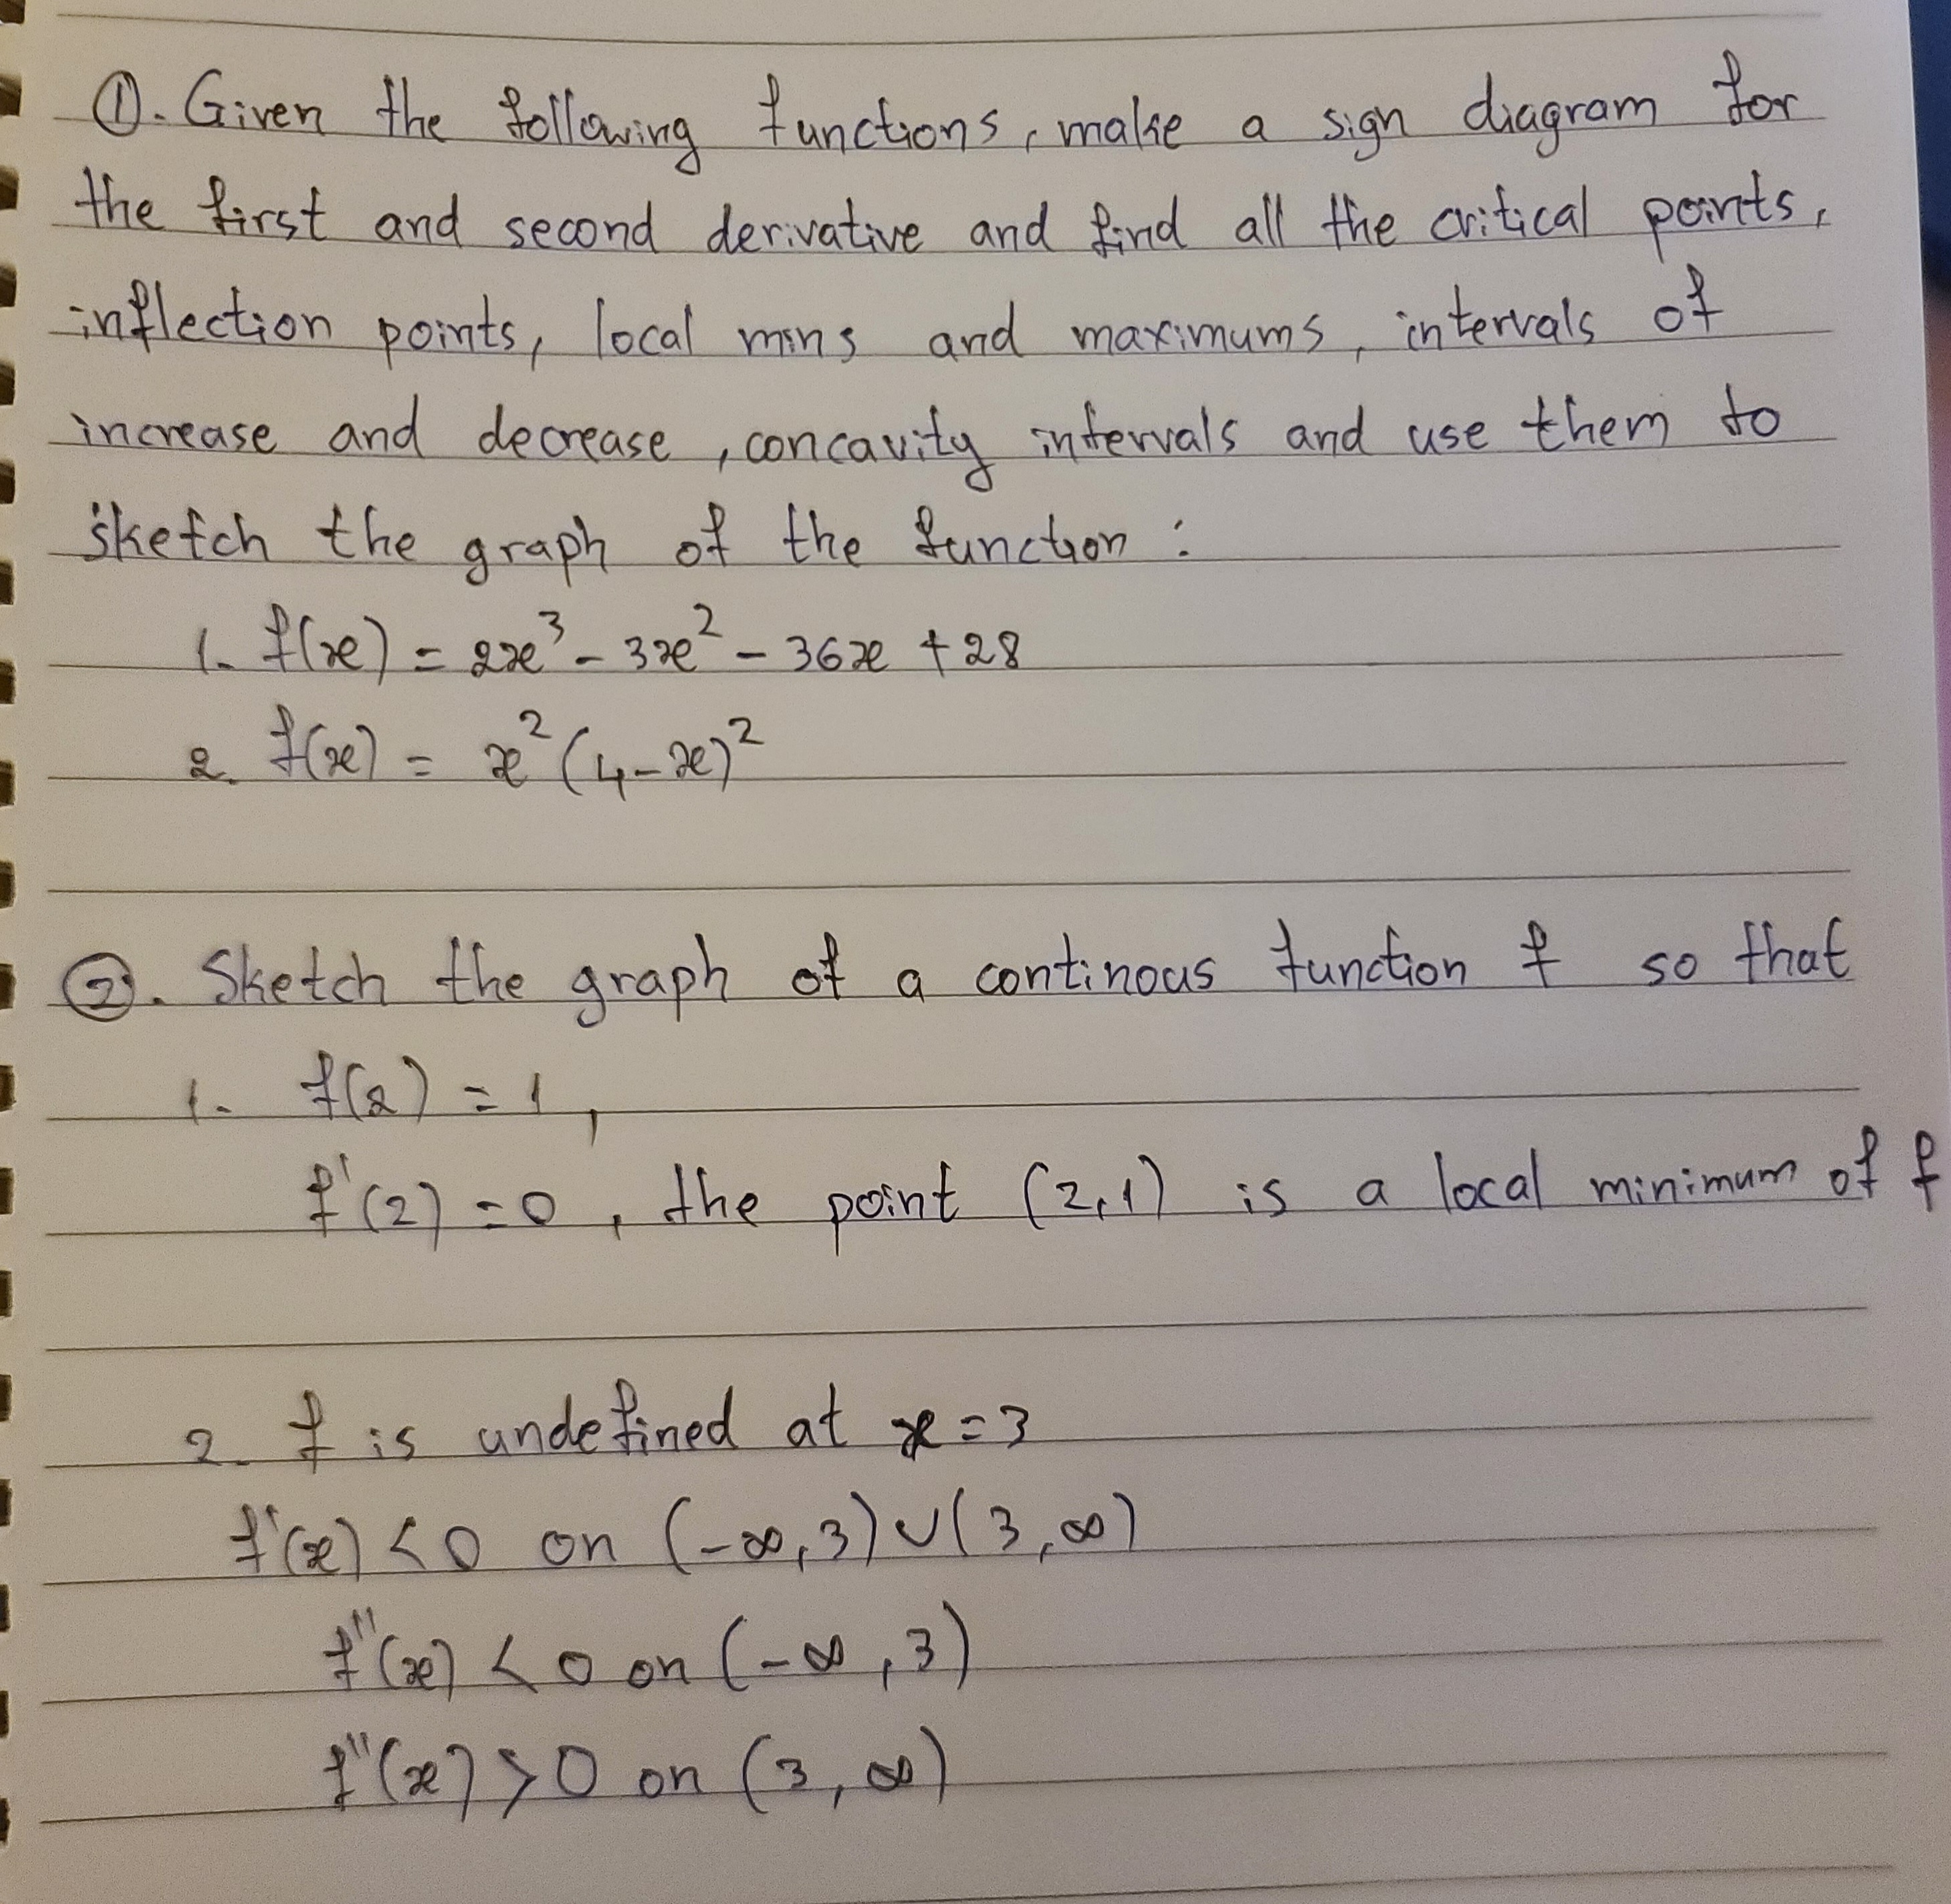 ①. Given the following functions, make a sign diagram for
the first and second derivative and find all the critical points,
inflection points, local mins and maximums, intervals of
increase and decrease, concavity intervals and use them to
sketch the graph of the function :
1. f(x) = 2x³ - 3x² - 36x + 28
2. f(x) = x² (4-x)²
②. Sketch the graph of a continous function f so that
1. f(2) = 1,
f'(2) = 0, the point (2,1) is a local minimum of f
2. f is undefined at x = 3
f'(x) < 0 on (-∞, 3) ∪ (3, ∞)
f''(x) < 0 on (-∞, 3)
f''(x) > 0 on (3, ∞)